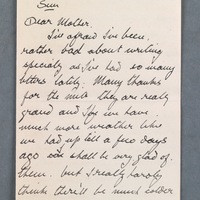 Sun
Dear Mother,
I'm afraid I've been
rather bad about writing
specialy as I've had so many
letters lately. Many thanks
for the mitts they are really
grand and I hope we have
much more weather like
we had up till a few days
ago we shall be very glad of
them. but I really
think there'll be much colder